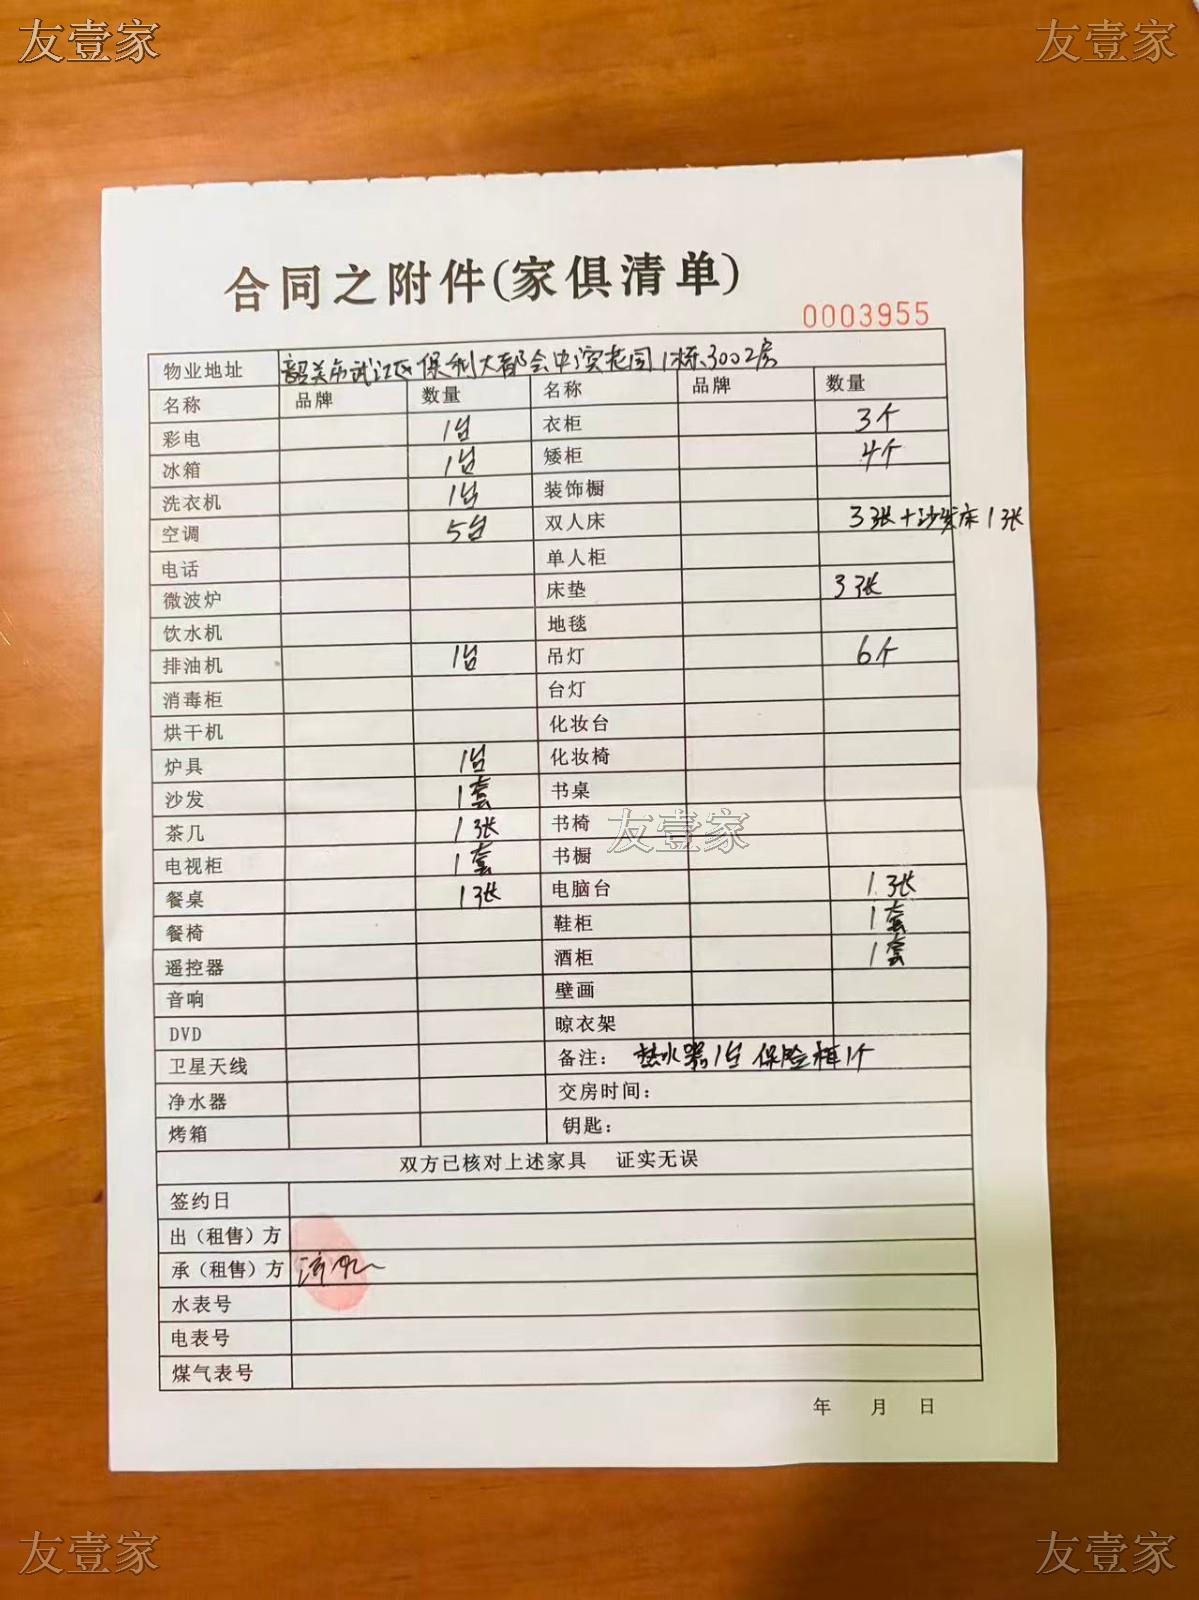 友壹家 友壹家
合同之附件(家俱清单)
0003955
物业地址 韶关市武江区保利大都会中滨花园1栋3002房
名称 品牌 数量 名称 品牌 数量
彩电 1台 衣柜 3个
冰箱 1台 矮柜 4个
洗衣机 1台 装饰橱
空调 5台 双人床 3张+沙发床1张
电话 单人柜
微波炉 床垫 3张
饮水机 地毯
排油机 1台 吊灯 6个
消毒柜 台灯
烘干机 化妆台
炉具 1台 化妆椅
沙发 1套 书桌
茶几 1张 书椅
友壹家
电视柜 1套 书橱
餐桌 1张 电脑台 1张
餐椅 鞋柜 1套
遥控器 酒柜 1套
音响 壁画
DVD 晾衣架
卫星天线 备注: 热水器1台 保险柜1个
净水器 交房时间:
烤箱 钥匙:
双方已核对上述家具 证实无误
签约日
出(租售)方
承(租售)方
水表号
电表号
煤气表号
年 月 日
友壹家 友壹家